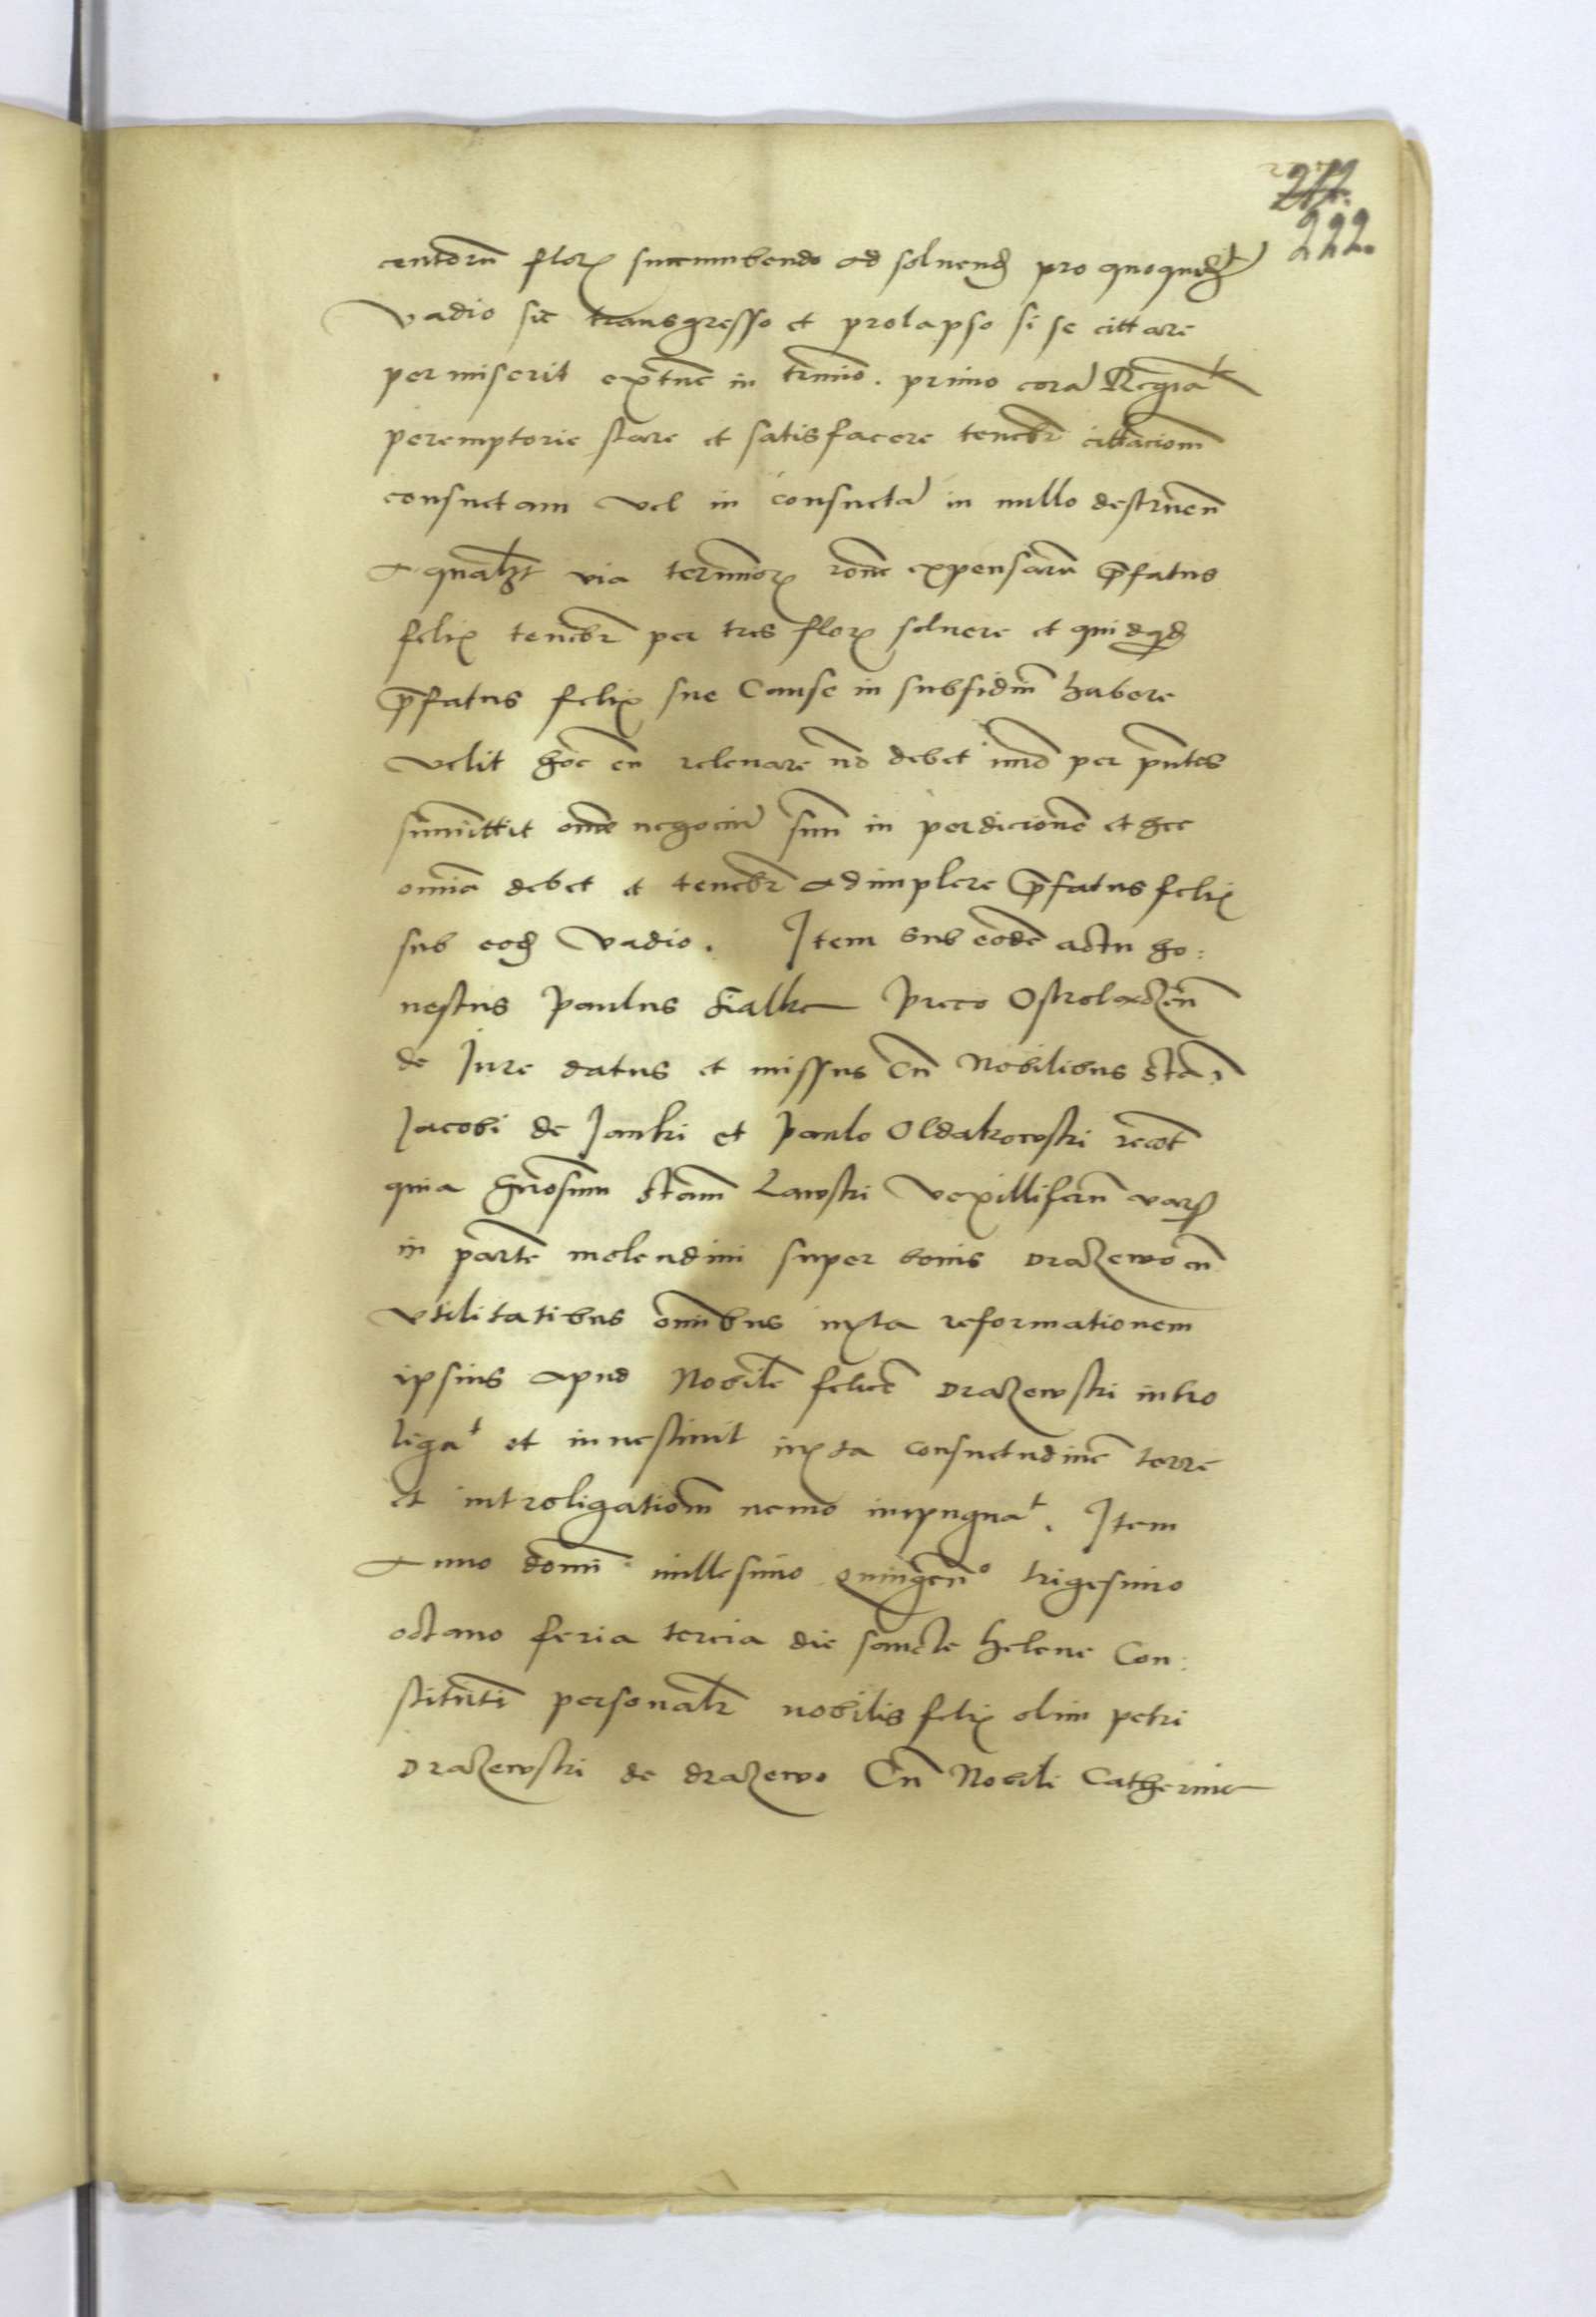 222.
centorũ florꝫ succumbendo ad soluendꝫ pro quoquidꝫ
vadio sic transgresso et prolapso si se cittare
permiserit extunc in termio. primo corã Regia
peremptorie stare et satisfacere tenebr cittaciom̃
consuetam vel in consuetã in nullo destruen̄
a qualꝫt via terminorꝫ rōne expensarũ p̄fatus
felix tenebr per tres florꝫ soluere et quidqd
p̄fatus felix sue Cause in subsidiũ habere
velit hoc eũ releuare nō debet imō per pn̄tes
summittit om̄e negociũ suũ in perdicionē et hec
omīa debet et tenebr adimplere p̄fatus felix
sub eodꝫ vadio. Item sub eodē actu ho:
nestus Paulus Fialka Preco Ostrolaczen̄
de Jure datus et missus Cũ Nobilibus Sta.
Jacobi de Janki et Paulo Oldakowski recōt
quia Gn̄osum Stanī Lawski vexilliferũ vars
in parte molendini super bonis Drazewo cũ
vtilitatibus omībus iuxta reformationem
ipsius apud Nobilē felicē Drazewski intro
ligat et inuestiuit iuxta consuetudinē terre
et introligatiom̃ nemo impugnat. Item
Anno domi millesimo quingen̄o trigesimo
octauo feria tercia die sancte helene Con:
stituti personalr nobilis felix olim petri
Drazewski de drazewo Cũ Nobili Catherina